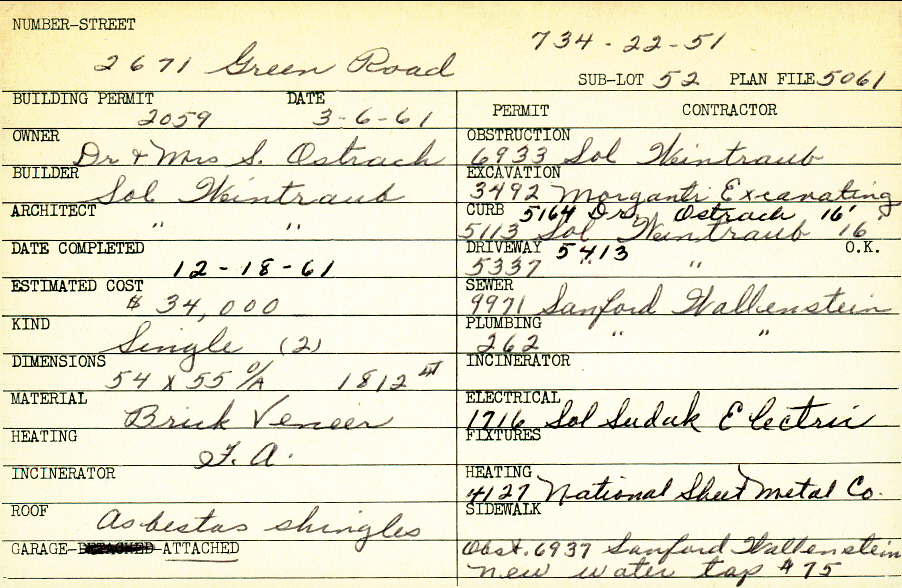 NUMBER-STREET
734-22-51
2671 Green Road
SUB-LOT 52 PLAN FILE 5061
BUILDING PERMIT DATE
2059 3-6-61
OWNER
Dr & Mrs S. Ostrach
BUILDER
Sol Weintraub
ARCHITECT
" "
DATE COMPLETED
12-18-61
ESTIMATED COST
$ 34,000
KIND
Single (2)
DIMENSIONS
54 x 55 o/A 1812
MATERIAL
Brick Veneer
HEATING
F. A.
INCINERATOR
ROOF
Asbestas shingles
GARAGE-DETACHED-ATTACHED
PERMIT CONTRACTOR
OBSTRUCTION
6933 Sol Weintraub
EXCAVATION
3492 Morganti Excavating
CURB 5164 Dr S. Ostrach 16'
5113 Sol Weintraub 16'
DRIVEWAY 5413 O.K.
5337 " "
SEWER
9971 Sanford Wallenstein
PLUMBING
262 " "
INCINERATOR
ELECTRICAL
1716 Sol Sudak Electric
FIXTURES
HEATING
4127 National Sheet Metal Co.
SIDEWALK
Obst. 6937 Sanford Wallenstein
new water tap #75